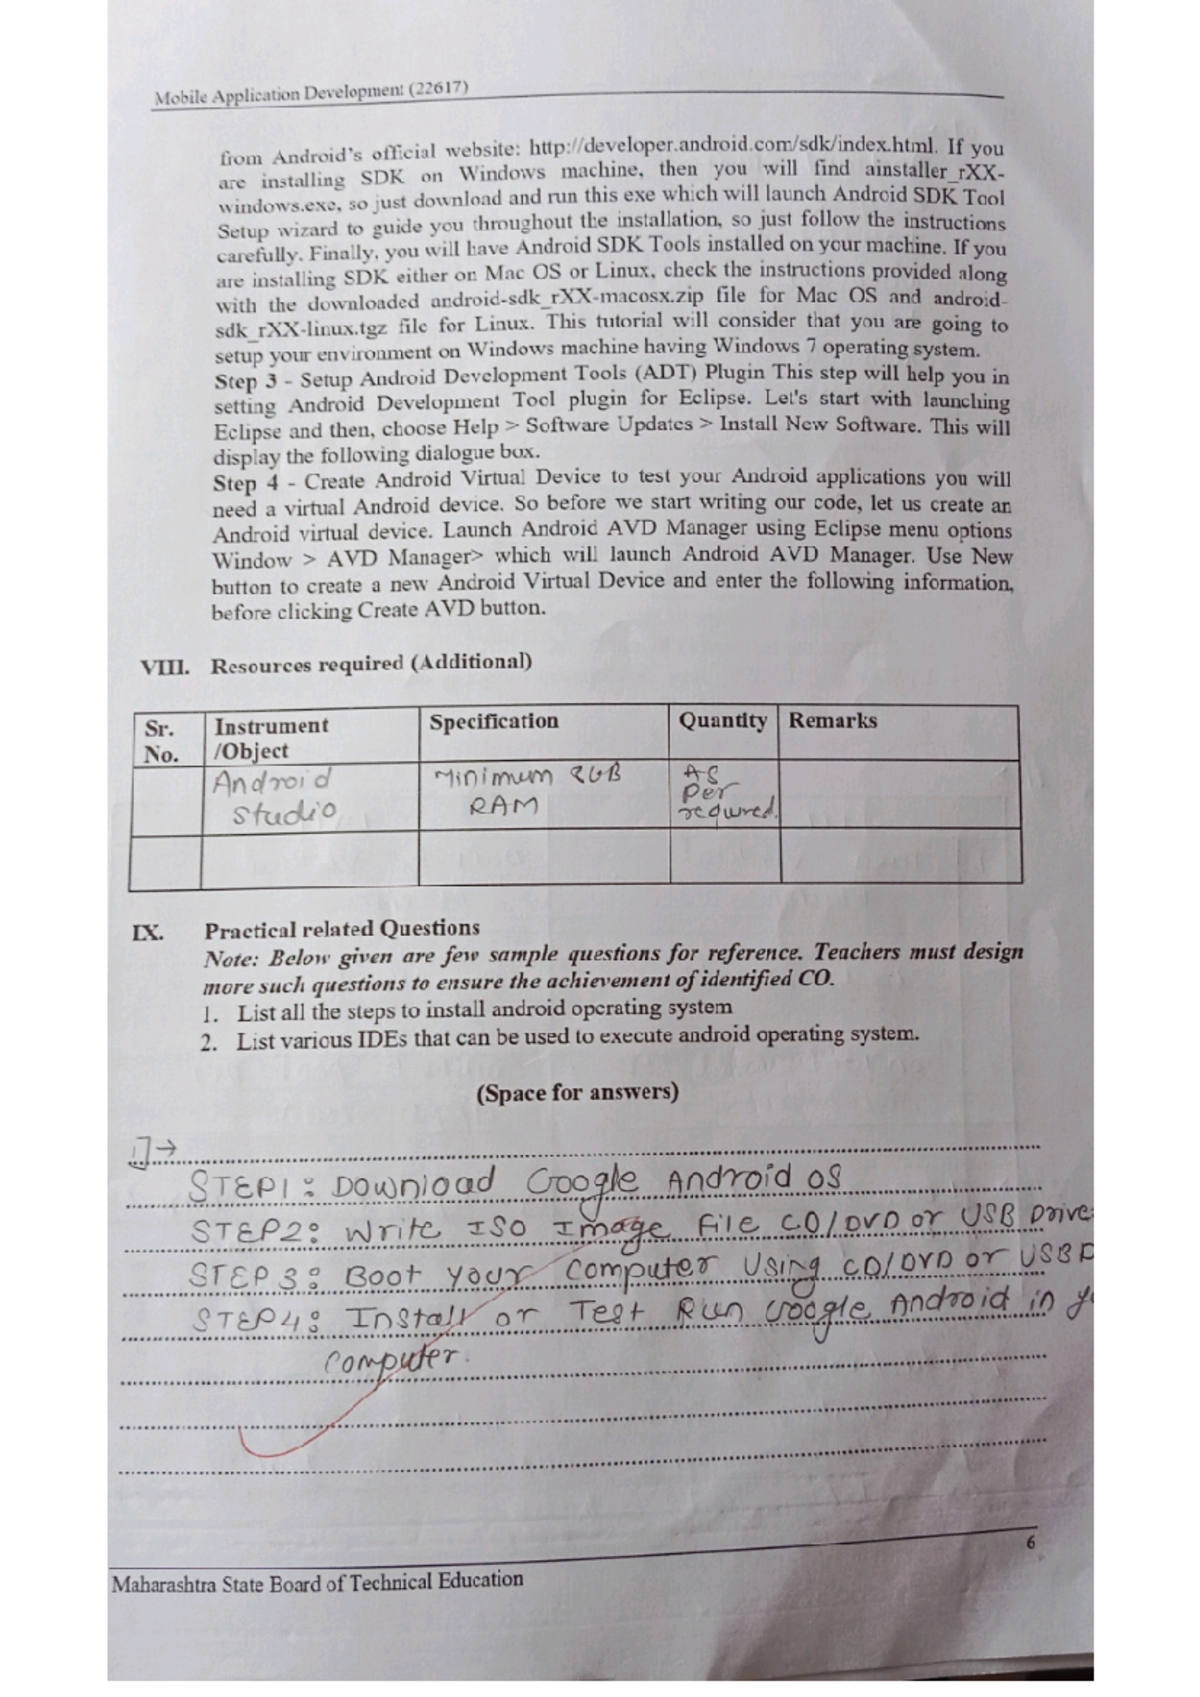 Mobile Application Development (22617)
from Android's official website: http://developer.android.com/sdk/index.html. If you
are installing SDK on Windows machine, then you will find ainstaller_rXX-
windows.exe, so just download and run this exe which will launch Android SDK Tool
Setup wizard to guide you throughout the installation, so just follow the instructions
carefully. Finally, you will have Android SDK Tools installed on your machine. If you
are installing SDK either on Mac OS or Linux, check the instructions provided along
with the downloaded android-sdk_rXX-macosx.zip file for Mac OS and android-
sdk_rXX-linux.tgz file for Linux. This tutorial will consider that you are going to
setup your environment on Windows machine having Windows 7 operating system.
Step 3 - Setup Android Development Tools (ADT) Plugin This step will help you in
setting Android Development Tool plugin for Eclipse. Let's start with launching
Eclipse and then, choose Help > Software Updates > Install New Software. This will
display the following dialogue box.
Step 4 - Create Android Virtual Device to test your Android applications you will
need a virtual Android device. So before we start writing our code, let us create an
Android virtual device. Launch Android AVD Manager using Eclipse menu options
Window > AVD Manager> which will launch Android AVD Manager. Use New
button to create a new Android Virtual Device and enter the following information,
before clicking Create AVD button.
VIII. Resources required (Additional)
Sr. No. Instrument /Object Specification Quantity Remarks
Android Studio Minimum 2GB RAM As per required.
IX. Practical related Questions
Note: Below given are few sample questions for reference. Teachers must design
more such questions to ensure the achievement of identified CO.
1. List all the steps to install android operating system
2. List various IDEs that can be used to execute android operating system.
(Space for answers)
1]→
STEP1: Download Google Android OS
STEP2: Write ISO Image File CD/DVD or USB Drive
STEP3: Boot your Computer Using CD/DVD or USB D
STEP4: Install or Test Run Google Android in y
computer.
6
Maharashtra State Board of Technical Education